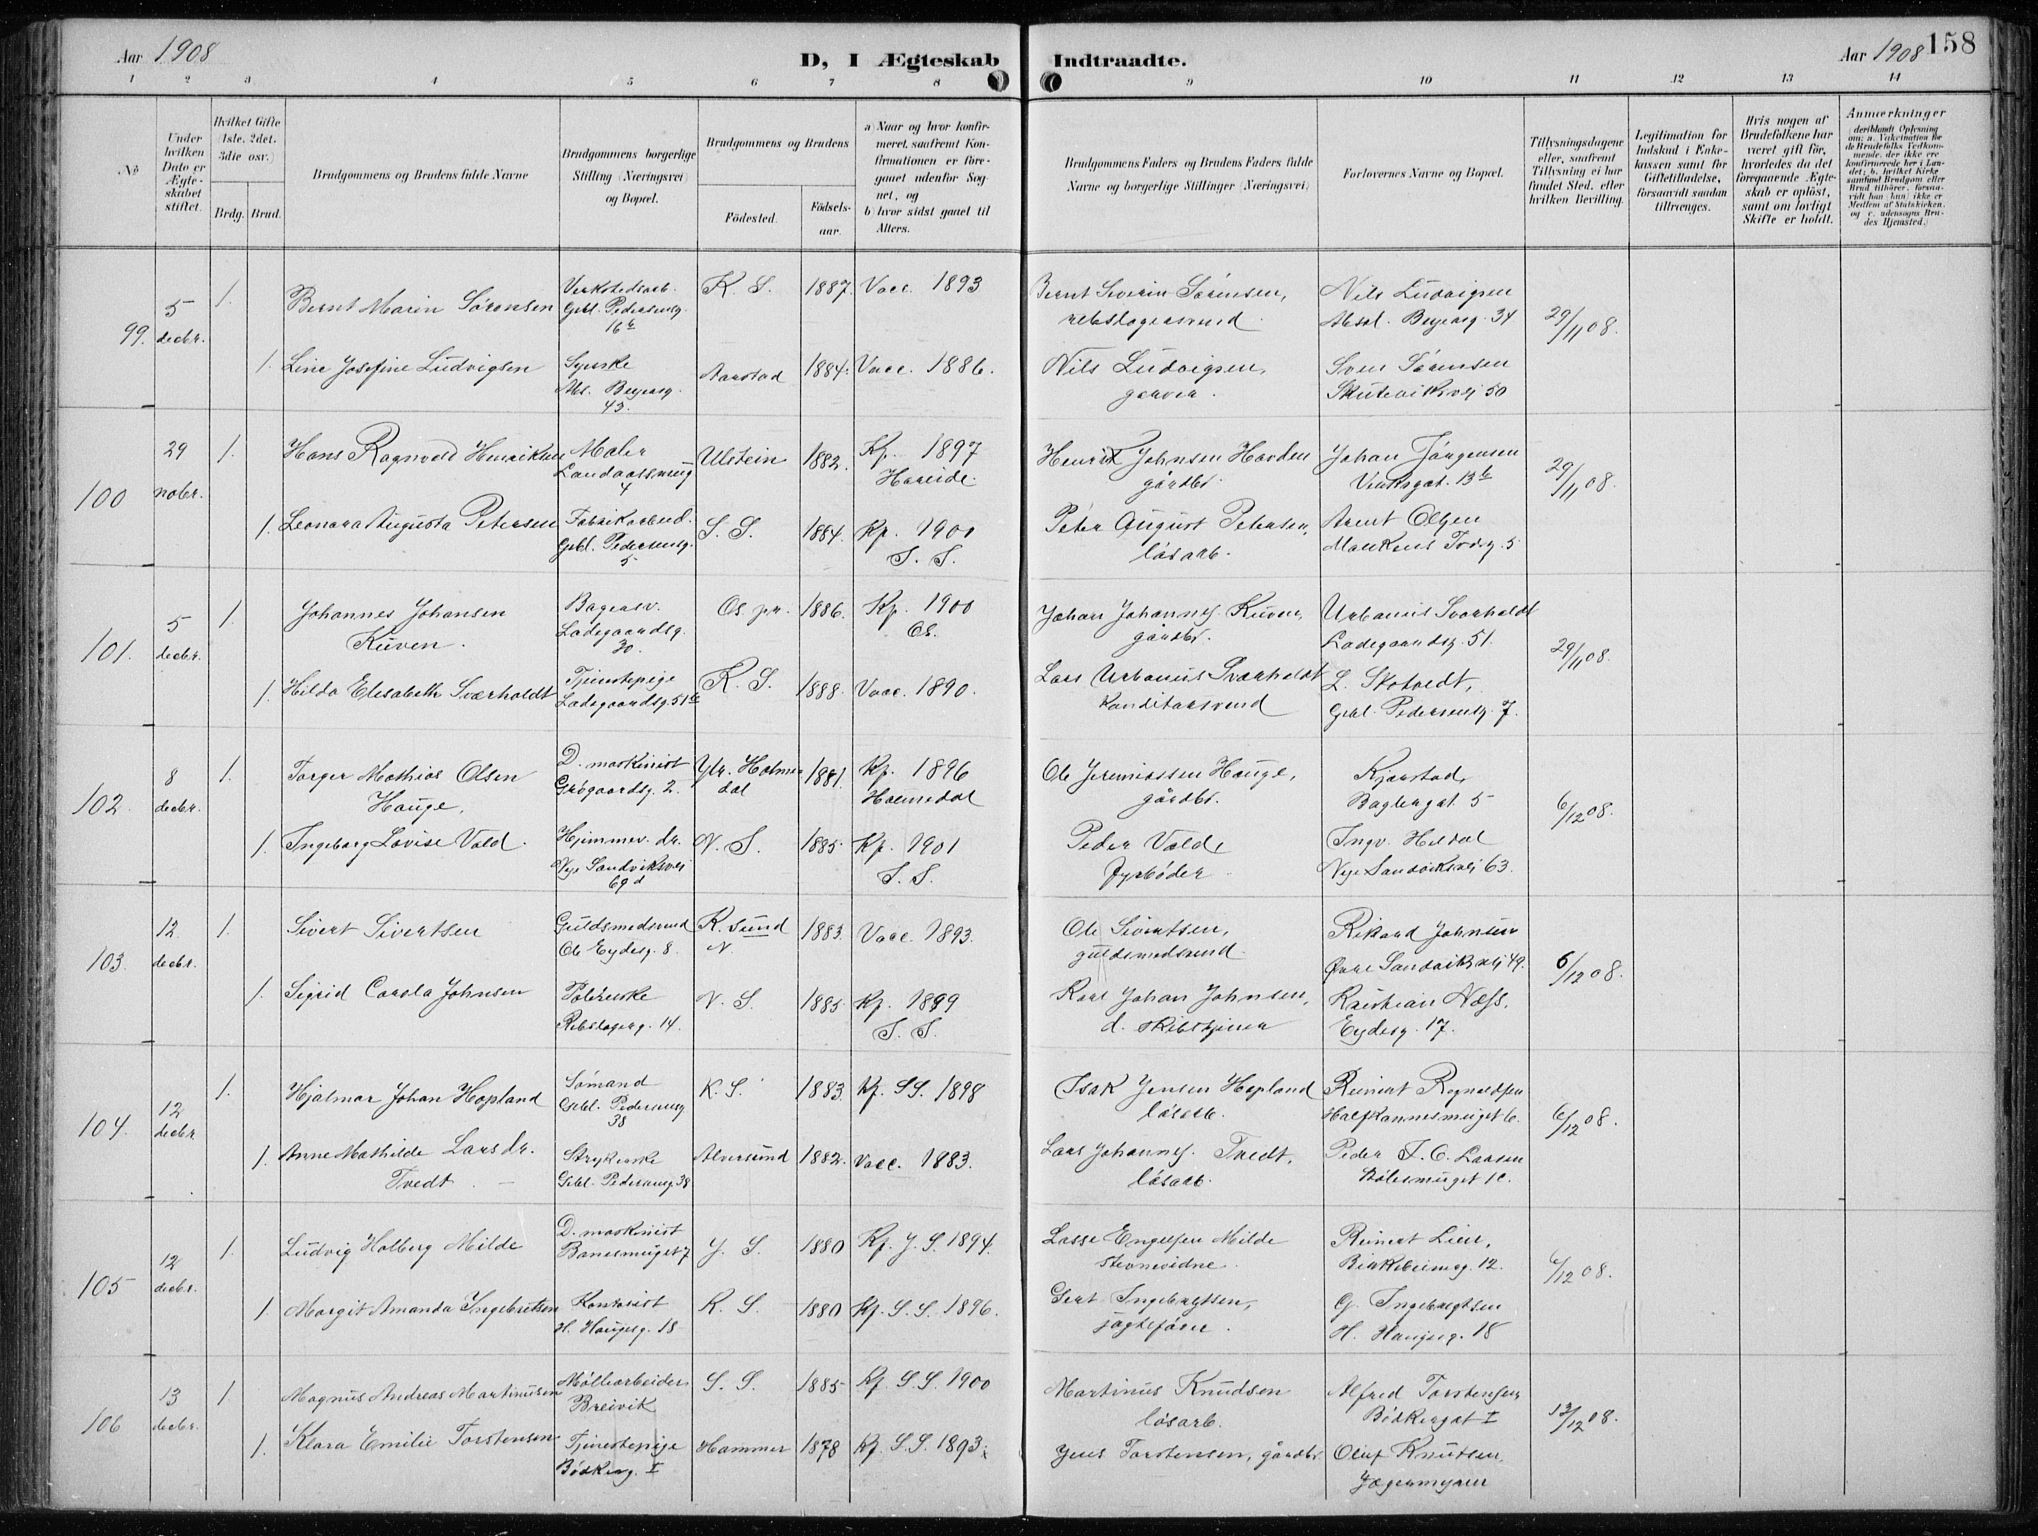 Aar 1908
D, I Ægteskab
Indtraadte.
Aar 1908
158
1 2 3 4 5 6 7 8 9 10 11 12 13 14
No
Under hvilken Dato er Ægteskabet stiftet.
Hvilket Gifte (1ste, 2det, 3die osv.)
Brdg. Brud.
Brudgommens og Brudens fulde Navne
Brudgommens borgerlige Stilling (Næringsvei) og Bopæl.
Brudgommens og Brudens
Fødested.
Fødselsaar.
a) Naar og hvor konfirmeret, saafremt Konfirmationen er foregaaet udenfor Sognet, og
b) hvor sidst gaaet til Alters.
Brudgommens Faders og Brudens Faders fulde Navne og borgerlige Stillinger (Næringsvei)
Forlovernes Navne og Bopæl.
Tillysningsdagene eller, saafremt Tillysning ei har fundet Sted, efter hvilken Bevilling.
Legitimation for Indskud i Enkekassen samt for Giftetilladelse, forsaavidt saadan tiltrænges.
Hvis nogen af Brudefolkene har været gift før, hvorledes da det foregaaende Ægteskab er opløst, samt om lovligt Skifte er holdt.
Anmærkninger
(deriblandt Oplysning om: a. Vakcination for de Brudefolks Vedkommende, der ikke ere konfirmerede her i Landet; b. hvilket Kirkesamfund Brudgom eller Brud tilhører, forsaavidt han (hun) ikke er Medlem af Statskirken, og c. udensogns Brudes Hjemsted.)
99. 5 decbr. 1. Bernt Marin Sørensen Verkstedsarb. Gebl. Pedersensg. 16b K S. 1887. Vacc. 1893 Bernt Severin Sørensen, rebslagersvend. Nils Ludvigsen Absal. Beyersg. 34 29/11 08.
1. Line Josefine Ludvigsen Syerske Abs. Beyersg. 43. Aarstad 1884. Vacc. 1886. Nils Ludvigsen, garver. Sven Sørensen Skutevikvei 50
100 29 nobr. 1. Hans Ragnvald Henriksen Maler Landaassmug 4 Ulstein 1882. Kp. 1897 Hareide. Henrik Johnsen Havden gårdbr. Johan Jørgensen 13b 29/11 08.
1. Leonora Augusta Petersen Fabrikarbeid. Gebl. Pedersensg. 5 S. S. 1884. Kp. 1900 S. S. Peter August Petersen, løsarb. Arent Olsen 5
101. 5 decbr. 1. Johannes Johansen Kuven. Bagersv. Ladegaardsg. 30. Os pr. 1886. Kp. 1900 Os. Johan Johannes. Kuven, gårdbr. Urbanus Svarholdt Ladegaardsg. 51. 29/11 08.
1. Hilda Elisabeth Sværholdt Tjenestepige Ladegaardsg. 51b K. S. 1888. Vacc. 1890. Lars Urbanus Sværholdt Konditorsvend L. Gebl. Pedersensg. 7.
102. 8 decbr. 1. Torger Mathias Olsen Hauge, D. maskinist Grøgaardsg. 2. Ytr. Holmedal 1881. Kp. 1896 Holmedal Ole Jeremiassen Hauge, gårdbr. Kjarstad, Baglergat. 5 6/12 08.
1. Ingeborg Lovise Vold. Hjemmev. dr. Nye Sandviksvei 69d N. S. 1885. Kp. 1901 S. S. Peder Vold, fyrbøder Ingv. Heldal Nye Sandviksvei 63.
103. 12 decbr. 1. Sivert Sivertsen Guldsmedsvend Ole Eydesg. 8. K. sund N. 1883. Vacc. 1893. Ole Sivertsen, guldsmedsvend. Rikard Johnsen Øvre Sandviksvei 49. 6/12 08.
1. Sigrid Carola Johnsen Polérerske Rebslagerg. 14. N. S. 1885. Kp. 1899 S. S. Karl Johan Johnsen, d. skibstjener Kristian Næss, Eydesg. 17.
104. 12 decbr 1. Hjalmar Johan Hopland Sømand Gebl. Pedersensg 38 K. S. 1883. Kf. SS. 1898 Isak Jensen Hopland løsarb. Reinert Ragnvaldsen Halfkannesmuget 6. 6/12 08.
1. Anne Mathilde Larsdr. Tvedt Strykerske Gebl. Pedersensg 38 Alversund 1882. Vacc. 1883. Lars Johannes. Tvedt, løsarb. Peder J. C. Larsen Bølesmuget 1c.
105 12 decbr. 1. Ludvig Holberg Milde D. maskinist Banesmuget 7 J. S. 1880 Kf. J. S. 1894. Lasse Engelsen Milde stevnevidne. Reinert Lien, Birkebeinerg. 12. 6/12 08.
1. Margit Amanda Ingebritsen Kontorist H. Haugesg. 18 K. S. 1880 Kf. S. S. 1896. Gert Ingebrigtsen, jagtefører. G. Ingebrigtsen H. Haugesg. 18
106 13 decbr. 1. Magnus Andreas Martinusen Møllearbeider Breivik S. S. 1885 Kf. S. S. 1900 Martinus Knudsen løsarb. Alfred Torstensen Bødkergat I 13/12 08.
1. Klara Emilie Torstensen Tjenestepige Bødkerg. I Hammer 1878 Kf. S. S. 1893. Jens Torstensen, gårdbr. Oluf Knutsen, Jægermyren